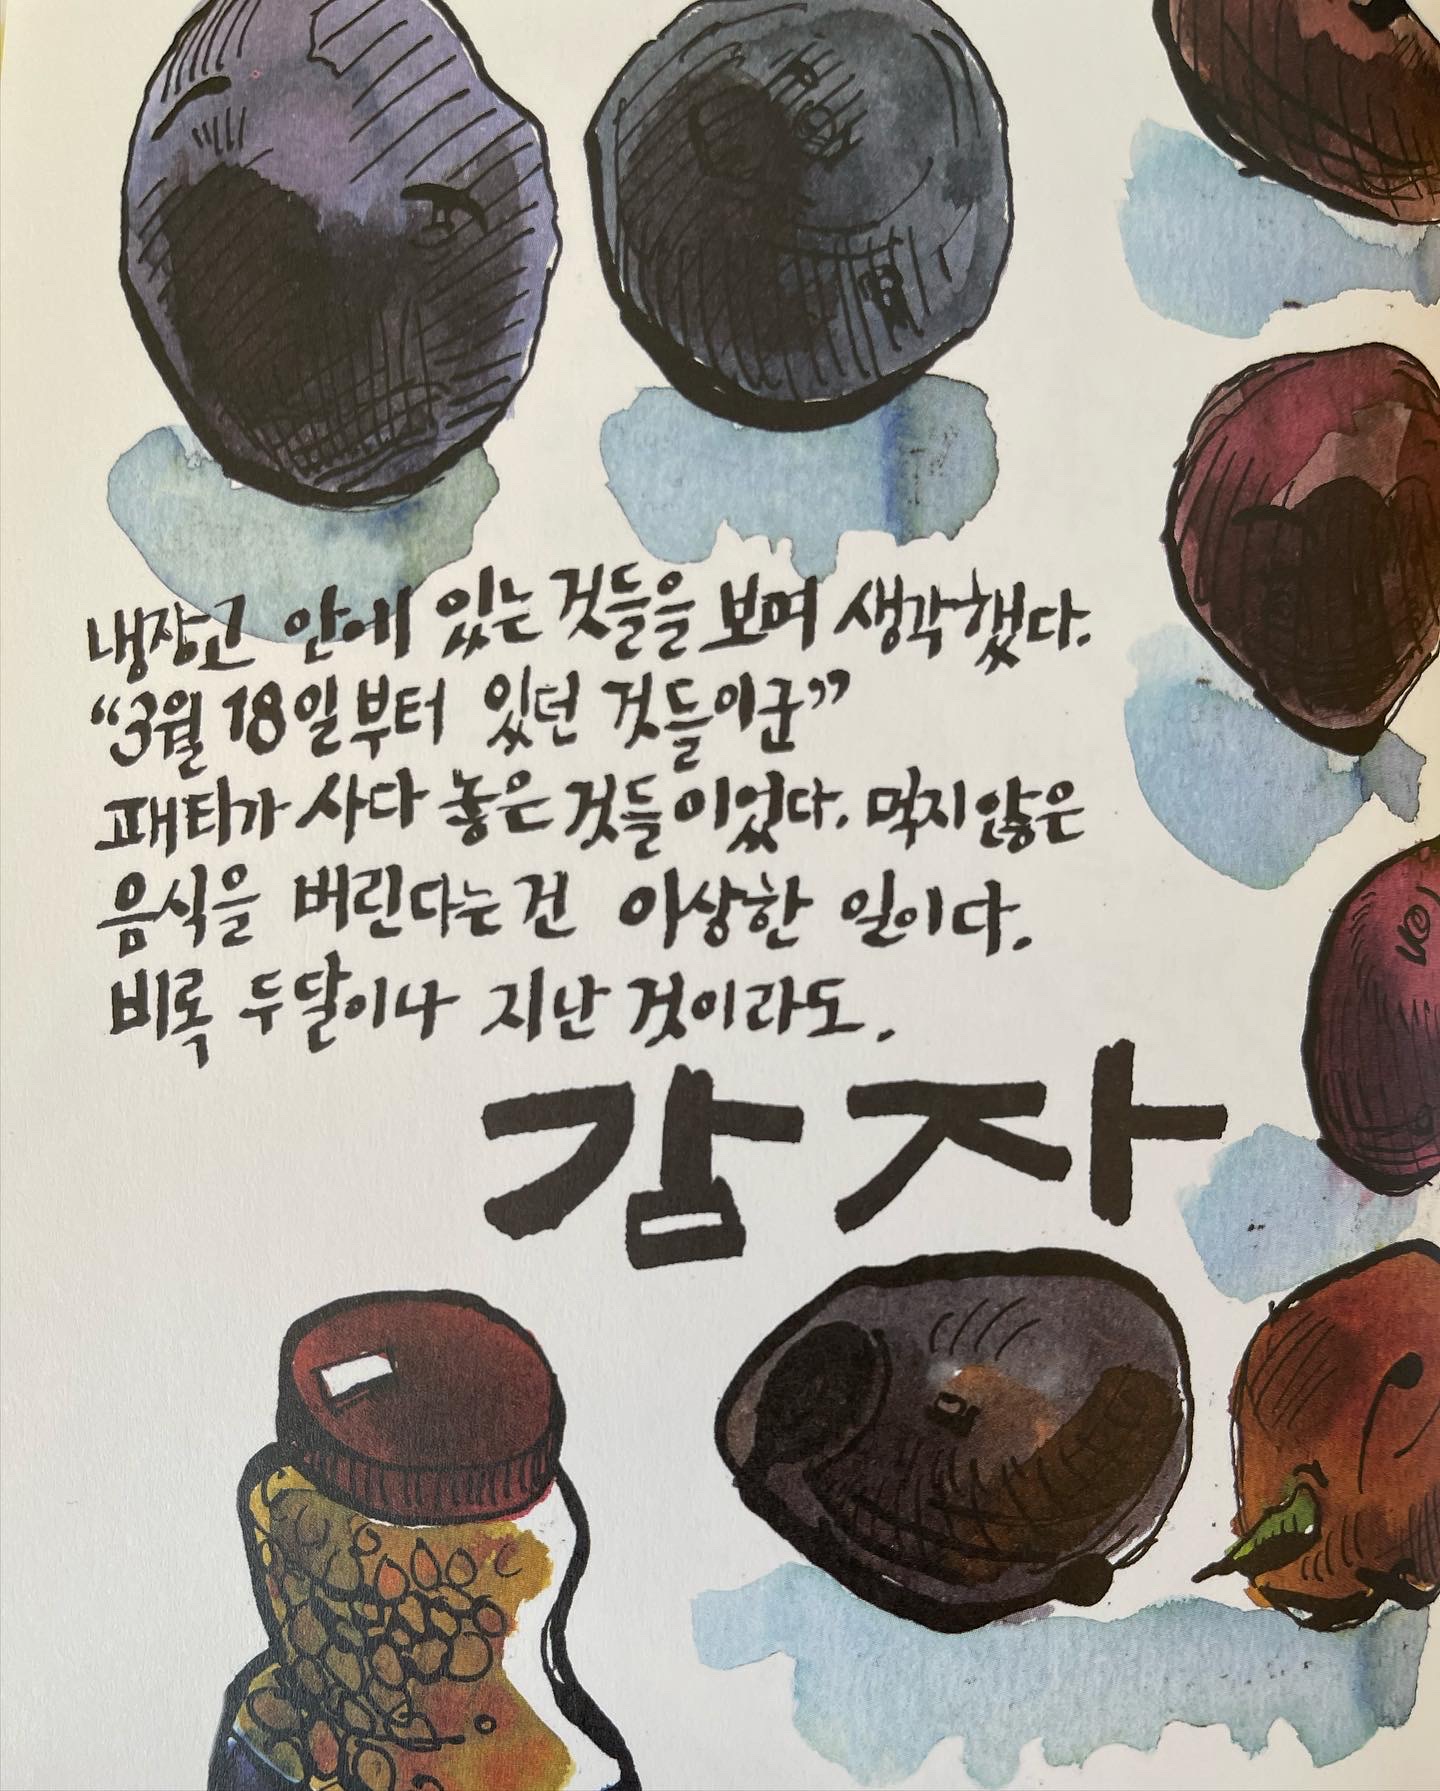 냉장고 안에 있는 것들을 보며 생각했다.
“3월 18일부터 있던 것들이군”
패티가 사다 놓은 것들이었다. 먹지 않은
음식을 버린다는 건 이상한 일이다.
비록 두달이나 지난 것이라도.
감자